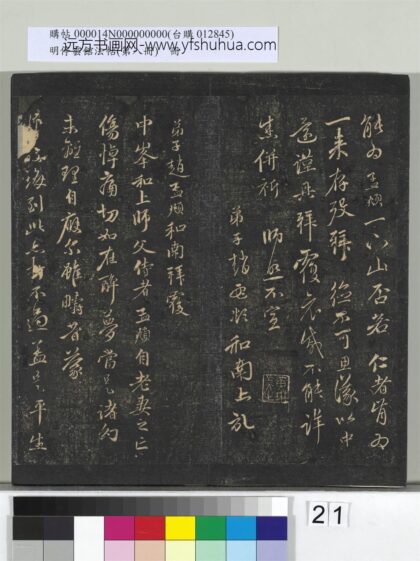 購帖 000014N000000000(台購 012845)
明停雲館法帖(第八冊) 冊
远方书画网-www.yfshuhua.com
能為孟頫一下山否若仁者肯為
一来存没拜德不可思議以中
甚謹此拜覆言或不能詳
悉併祈師父不宣
弟子趙孟頫和南上
弟子趙孟頫和南拜覆
中峯和上師父侍者孟頫自老妻之亡
傷悼痛切如在醉夢當是諸幻
未離理自應尔雖疇昔蒙
師誨到此亦不過益平生
21